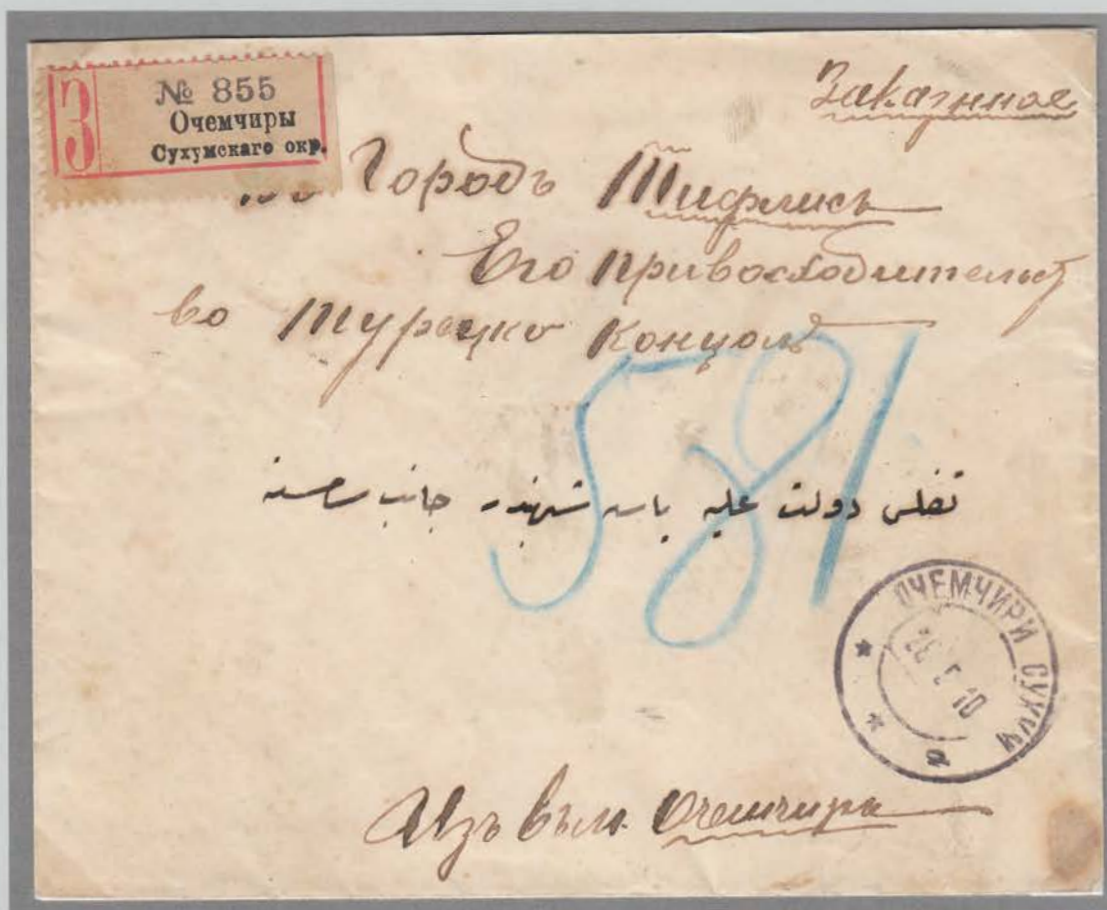 Заказнное
З
№ 855
Очемчиры
Сухумскаго окр.
Городъ Тифлись
Его Привосходительст
во Турецко Концолъ
581
تفلس دولت علیه باش شهبندر جانب
ОЧЕМЧИРИ СУХУМ
10
а
Изъ Очемчира